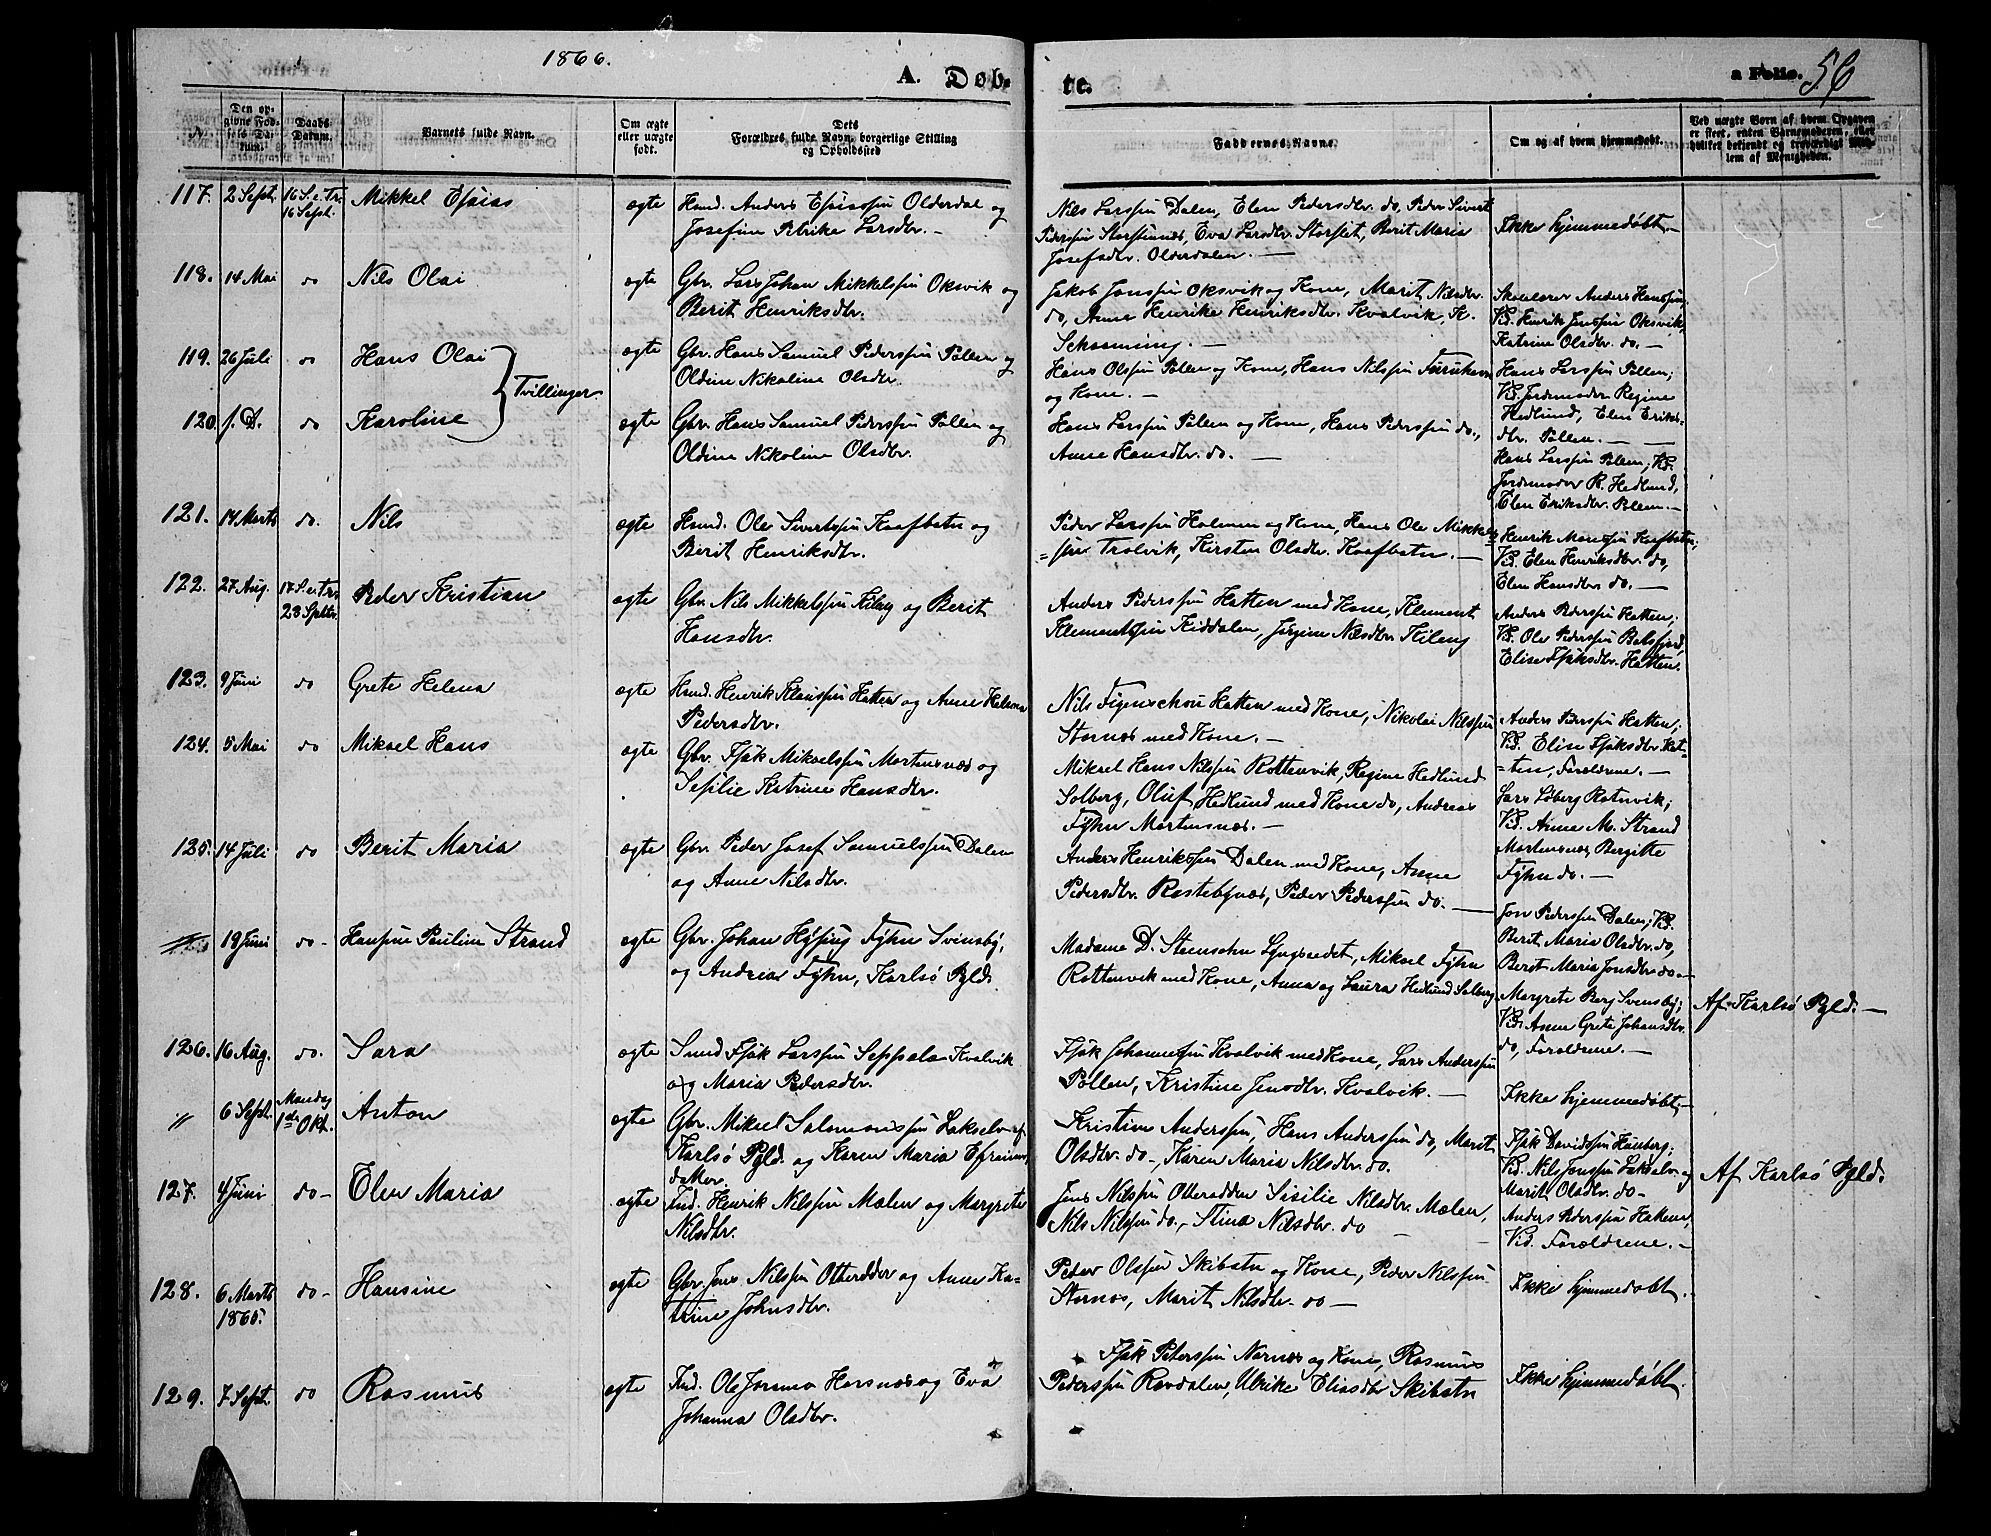 1866.
A. Døb-
te.
a Folio. 56
N.
Den op-
givne Fød-
sels Da-
tum.
Daabs-
Datum.
Barnets fulde Navn.
Om ægte
eller uægte
født.
Dets
Forældres fulde Navn, borgerlige Stilling
og Opholdssted
Faddernes Navne.
Om og af hvem hjemmedøbt.
Ved uægte Børn af hvem Opgaven
er skeet, enten Barnemoderen, eller
hvilket bekjendt og troværdigt Med-
lem af Menigheden.
117. 2 Sept. 16 S. e. Tr.
16 Sept.
Mikkel Esaias
ægte
Hmd. Anders Esaiassøn Olderdal og
Josefine Petrike Larsdtr. —
Nils Larssøn Dalen, Elen Pedersdtr. do, Peder Sivert
Pederssøn Storsteinnæs, Eva Larsdtr. Storslet, Berit Maria
Josefsdtr. Olderdalen. —
Ikke hjemmedøbt. —
118. 14 Mai do Nils Olai
ægte
Gbr. Lars Johan Mikkelssøn Oksvik og
Berit Henriksdtr.
Jakob Jonssøn Oksvik og Kone, Marit Nilsdtr.
do, Anne Henrike Henriksdtr. Kvalvik, K.
Schaaning. —
Skolelærer Anders Hanssøn;
Vd. Henrik Jonssøn Oksvik,
Katrine Olsdtr. do. —
119. 26 Juli do Hans Olai
Tvillinger
ægte
Gbr. Hans Samuel Pederssøn Pollen og
Oldine Nikoline Olsdtr.
Hans Olssøn Pollen og Kone, Hans Nilssøn Furuhavn
og Kone. —
Hans Larssøn Pollen;
Vd. Jordemoder Regine
Hedlund, Elen Eriks-
dtr. Pollen. —
120. s. D. do Karoline
ægte
Gbr. Hans Samuel Pederssøn Pollen og
Oldine Nikoline Olsdtr.
Hans Larssøn Pollen og Kone, Hans Pederssøn do.,
Anne Hansdtr. do. —
Hans Larssøn Pollen; Vd.
Jordemoder R. Hedlund,
Elen Eriksdtr. Pollen. —
121. 14 Marts do. Nils
ægte
Hmd. Ole Sivertssøn Kaafbotn og
Berit Henriksdtr.
Peder Larssøn Holmen og Kone, Hans Ole Mikkels-
=søn Trolvik, Kirsten Olsdtr. Kaafbotn. —
Henrik Monssøn Kaafbotn;
Vd. Elen Henriksdtr. do,
Elen Hansdtr. do. —
122. 27 Aug. 17 S. e. Tr.
23 Septbr.
Peder Kristian
ægte
Gbr. Nils Mikkelssøn Kileng og Berit
Hansdtr.
Anders Pederssøn Hatten med Kone, Klement
Klementssøn Kiddalen, Jørgine Nilsdtr. Kileng
Anders Pederssøn Hatten;
Vd. Ole Pederssøn Balsfjord,
Elise Isaksdtr. Hatten.
123. 9 Juni do Grete Helena
ægte
Hmd. Henrik Klaussøn Hatten og Anne Helena
Pedersdtr.
Nils Figenschou Hatten med Kone, Nikolai Nilssøn
Stornæs med Kone. —
Anders Pederssøn Hatten;
Vd. Elise Isaksdtr. Hat-
=ten, Forældrene. —
124. 5 Mai do Mikael Hans
ægte
Gbr. Isak Mikaelssøn Mortensnæs og
Sesilie Katrine Hansdtr.
Mikael Hans Nilssøn Rottenvik, Regine Hedlund
Solberg, Oluf Hedlund med Kone do, Andreas
Fyhn Mortensnæs. —
Lars Løberg Rotnvik;
Vd. Anne M. Strand
Mortensnæs, Bergitte
Fyhn do. —
125. 14 Juli do Berit Maria
ægte
Gbr. Peder Josef Samuelssøn Dalen
og Anne Nilsdtr.
Anders Henrikssøn Dalen med Kone, Anne
Pedersdtr. Rastebynæs, Peder Pederssøn do. —
Jon Pederssøn Dalen; Vd.
Berit Maria Olsdtr. do,
Berit Maria Jonsdtr. do. —
19 Juni do- Hansine Pauline Strand
ægte
Gbr. Johan Hysing Fyhn Svensby,
og Andrea Fyhn, Karlsø Pgld.
Madame D. Steensohn Lyngseidet, Mikael Fyhn
Rottenvik med Kone, Anna og Laura Hedlund Solberg
Margrete Berg Svensby;
Vd. Anne Grete Johansdtr.
do, Forældrene. —
Af Karlsø Pgld. —
126. 16 Aug. do. Sara
ægte
Smed Isak Larssøn Seppala Kvalvik
og Maria Pedersdtr.
Isak Johannessøn Kvalvik med Kone, Lars Anderssøn
Pollen, Kristine Jensdtr. Kvalvik. —
Ikke hjemmedøbt. —
〃 6 Sept. Mandag
1ste Okt.
Anton
ægte
Gbr. Mikael Salomonssøn Lakselv af
Karlsø Pgld. og Karen Maria Efraims-
datter.
Kristian Anderssøn, Hans Anderssøn do, Marit
Olsdtr. do-, Karen Maria Nilsdtr. do.
Isak Davidssøn Hamberg;
Vd. Nils Jonssøn Lakselv og
Marit Olsdtr. do-
Af Karlsø Pgld.
127. 4 Juni do- Elen Maria
ægte
Ind. Henrik Nilssøn Mælen og Margrete
Nilsdtr.
Jens Nilssøn Otterodden Sisilie Nilsdtr. Mælen,
Nils Nilssøn do., Stina Nilsdtr. do —
Anders Pederssøn Hatten,
Vid. Forældrene. —
128. 6 Marts
1865.
do- Hansine
ægte
Gbr. Jens Nilssøn Otterodden og Anne Ka-
trine Johnsdtr.
Peder Olssøn Skibotn og Kone, Peder Nilssøn
Stornæs, Marit Nilsdtr. do —
Ikke hjemmedøbt.
129. 7 Septr do Rasmus
ægte
Ind. Ole Joramo Horsnæs og Eva
Johanna Olsdtr.
Isak Peterssøn Nornæs og Kone, Rasmus
Pederssøn Rovdalen, Ulrike Eliasdtr Skibotn
Ikke hjemmedøbt.